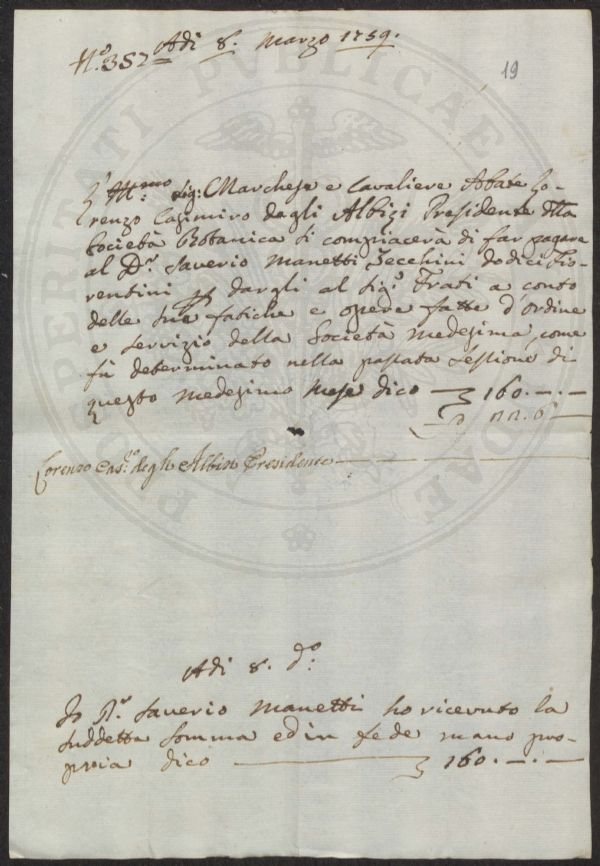 N.° 357 Adi 8. Marzo 1759.
19
L'Ill.mo Sig: Marchese e Cavaliere Abate Lo-
renzo Casimiro degli Albizi Presidente della
Società Botanica si compiacerà di far pagare
al D.r Saverio Manetti Zecchini dodici Fio-
rentini per dargli al Sig.r Frati a conto
delle sue fatiche e opere fatte d'ordine
e servizio della Società medesima, come
fù determinato nella passata sessione di
questo medesimo mese dico — 160.—.—
Lorenzo Cas.o degli Albizi Presidente
Adi 8. d.o
Io D.r Saverio Manetti ho ricevuto la
suddetta somma ed in fede mano pro-
pria dico — 160.—.—
PROSPERITATI PUBLICAE